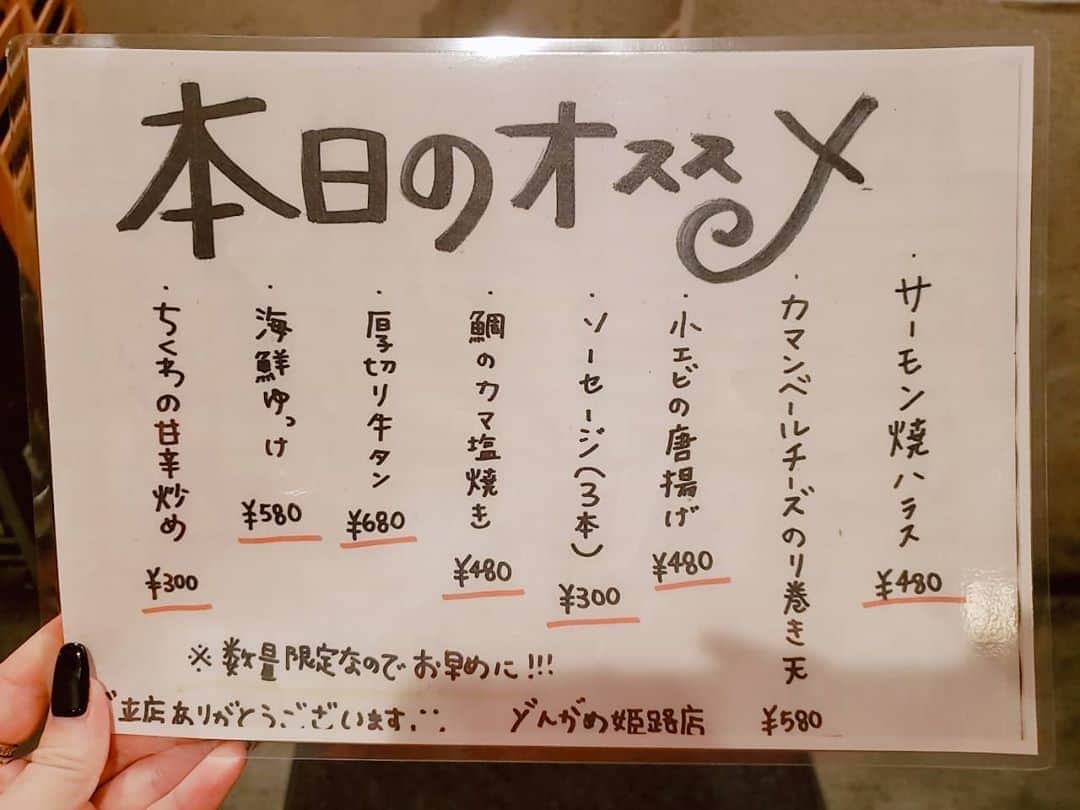 本日のオススメ
・サーモン焼ハラス
¥480
・カマンベールチーズのり巻き天
¥580
・小エビの唐揚げ
¥480
・ソーセージ(3本)
¥300
・鯛のカマ塩焼き
¥480
・厚切り牛タン
¥680
・海鮮ゆっけ
¥580
・ちくわの甘辛炒め
¥300
※数量限定なのでお早めに!!!
ご来店ありがとうございます
どんがめ姫路店